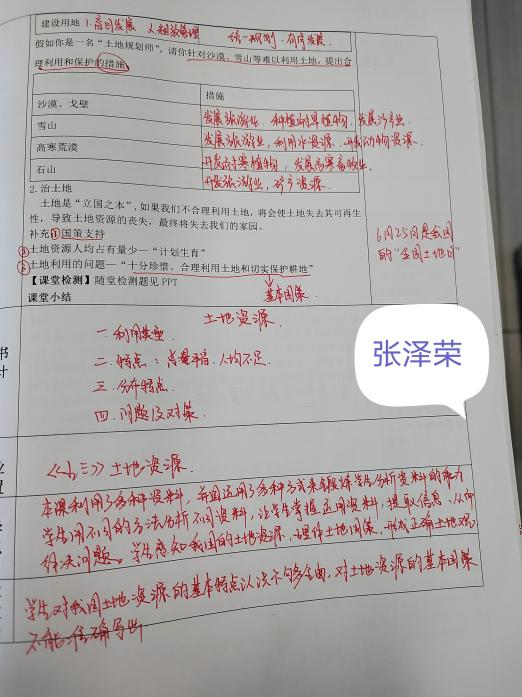 建设用地
统一规划、有序发展.
假如你是一名“土地规划师”,请你针对沙漠、雪山等难以利用土地,提出合
理利用和保护的措施
措施
沙漠、戈壁
发展旅游业、种植耐旱植物、发展沙产业.
雪山
发展旅游业,利用水资源、开发动物资源.
高寒荒漠
开发耐寒植物,发展高寒畜牧业,
石山
开发旅游业,矿产资源.
2.治土地
土地是“立国之本”,如果我们不合理利用土地,将会使土地失去其可再生
性,导致土地资源的丧失,最终将失去我们的家园。
补充①国策支持
6月25日是我国
的“全国土地日”
③土地资源人均占有量少—“计划生育”
②土地利用的问题—“十分珍惜、合理利用土地和切实保护耕地”
【课堂检测】随堂检测题见PPT
基本国策
课堂小结
土地资源.
一.利用类型.
二.特点:总量丰富、人均不足.
三.分布特点.
四.问题及对策.
张泽荣
土地资源.
本课利用了多种资料,并且运用了多种方式来锻炼学生分析资料的能力
学生用不同的方法分析不同资料,让学生掌握运用资料,提取信息,从而
解决问题。学生感知我国的土地资源,理解土地国策,形成正确土地观.
学生对我国土地资源的基本特点认识不够全面,对土地资源的基本国策
不能准确写出